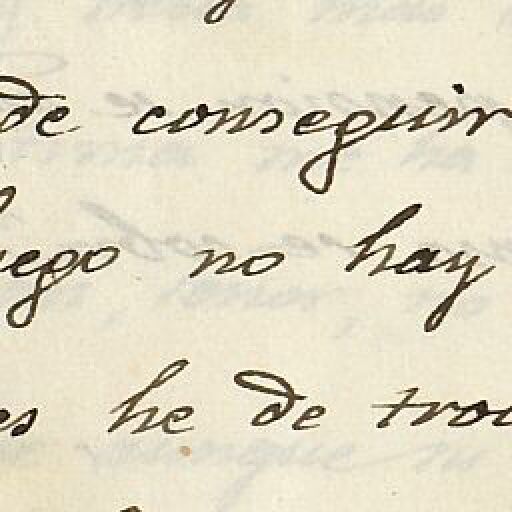 de conseguir
uego no hay
es he de troc